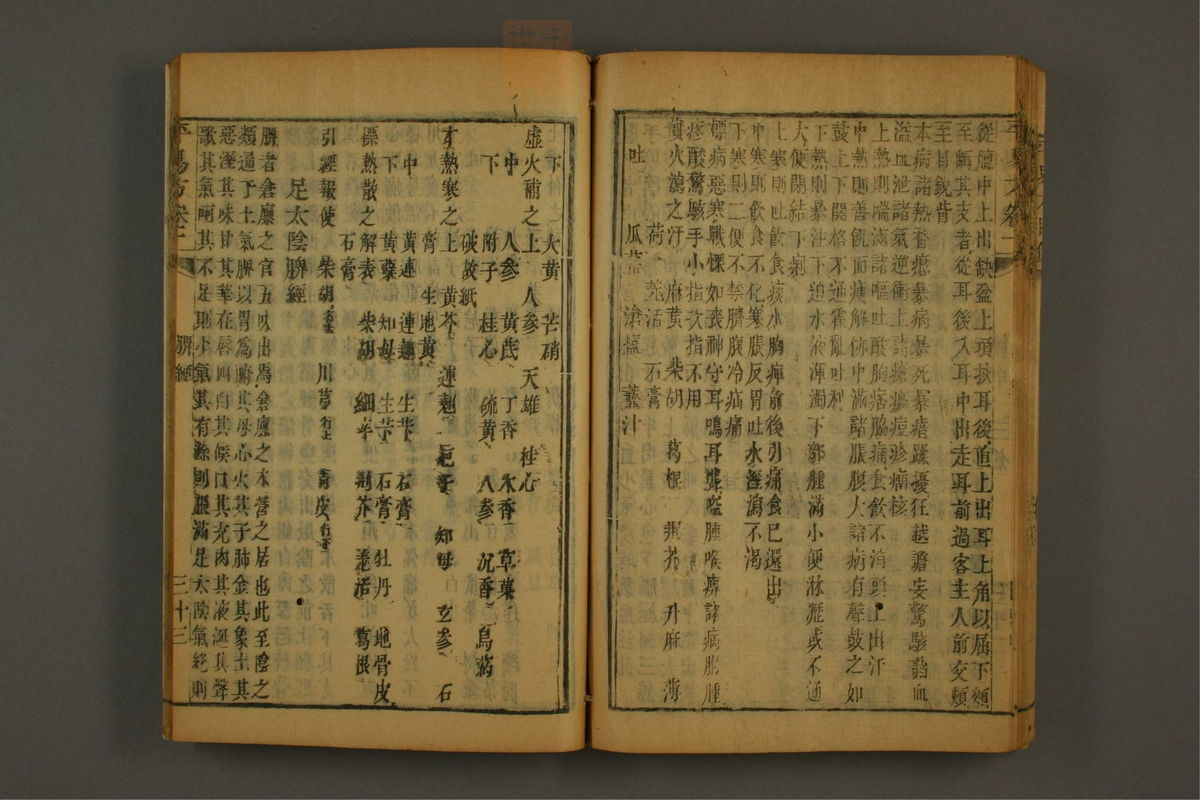 從膻中上出缺盆上項挾耳後直上出耳上角以屈下頰
至䪼其支者從耳後入耳中出走耳前過客主人前交頰
至目銳眥
本病諸熱瞀瘛暴病暴死暴瘖躁擾狂越譫妄驚駭諸血
溢血泄諸氣逆衝上諸瘡瘍痘疹瘤核
上熱則喘滿諸嘔吐酸胸痞脇痛食飲不消頭上出汗
中熱則善飢而瘦解㑊中滿諸脹腹大諸病有聲鼓之如
鼓上下關格不通霍亂吐利
下熱則暴注下迫水液渾濁下部腫滿小便淋瀝或不通
大便閉結下痢
上寒則吐飲食痰水胸痺前後引痛食已還出
中寒則飲食不化寒脹反胃吐水溼瀉不渴
下寒則二便不禁臍腹冷疝痛
標病惡寒戰慄如喪神守耳鳴耳聾嗌腫喉痹諸病胕腫
疼酸驚駭手小指次指不用
實火瀉之汗 麻黃 柴胡 葛根 荊芥 升麻 薄
荷 羌活 石膏
吐 瓜蒂 滄鹽 虀汁
下 大黃 芒硝
虛火補之上 人參 天雄 桂心
中 人參 黃芪 丁香 木香 草果
下 附子 桂心 硫黃 人參 沉香 烏藥
破故紙
寸熱寒之上 黃芩 連翹 梔子 知母 玄參 石
膏 生地黃
中 黃連 連翹 生芐 石膏
下 黃蘗 知母 生芐 石膏 牡丹 地骨皮
標熱散之解表 柴胡 細辛 荊芥 羌活 葛根
石膏
引經報使 柴胡 川芎行上 青皮行下
足太陰脾經
脾者倉廩之官五味出焉倉廩之本營之居也此至陰之
類通于土氣脾以胃爲腑其母心火其子肺金其象土其
惡溼其味甘其華在唇四白其候口其充肉其液涎其聲
歌其氣呵其不足則少氣其有餘則脹滿足太陰氣絕則
卷二
脾經
三十三